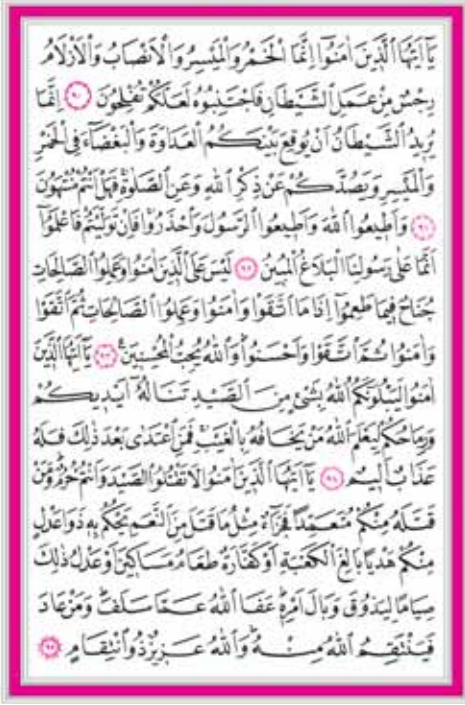 يَٓا اَيُّهَا الَّذ۪ينَ اٰمَنُٓوا اِنَّمَا الْخَمْرُ وَالْمَيْسِرُ وَالْاَنْصَابُ وَالْاَزْلَامُ
رِجْسٌ مِنْ عَمَلِ الشَّيْطَانِ فَاجْتَنِبُوهُ لَعَلَّكُمْ تُفْلِحُونَ ﴿٩٠﴾ اِنَّمَا
يُر۪يدُ الشَّيْطَانُ اَنْ يُوقِعَ بَيْنَكُمُ الْعَدَاوَةَ وَالْبَغْضَٓاءَ فِي الْخَمْرِ
وَالْمَيْسِرِ وَيَصُدَّكُمْ عَنْ ذِكْرِ اللّٰهِ وَعَنِ الصَّلٰوةِۚ فَهَلْ اَنْتُمْ مُنْتَهُونَ
﴿٩١﴾ وَاَط۪يعُوا اللّٰهَ وَاَط۪يعُوا الرَّسُولَ وَاحْذَرُواۚ فَاِنْ تَوَلَّيْتُمْ فَاعْلَمُٓوا
اَنَّمَا عَلٰى رَسُولِنَا الْبَلَاغُ الْمُب۪ينُ ﴿٩٢﴾ لَيْسَ عَلَى الَّذ۪ينَ اٰمَنُوا وَعَمِلُوا الصَّالِحَاتِ
جُنَاحٌ ف۪يمَا طَعِمُٓوا اِذَا مَا اتَّقَوْا وَاٰمَنُوا وَعَمِلُوا الصَّالِحَاتِ ثُمَّ اتَّقَوْا
وَاٰمَنُوا ثُمَّ اتَّقَوْا وَاَحْسَنُواۜ وَاللّٰهُ يُحِبُّ الْمُحْسِن۪ينَ۟ ﴿٩٣﴾ يَٓا اَيُّهَا الَّذ۪ينَ
اٰمَنُوا لَيَبْلُوَنَّكُمُ اللّٰهُ بِشَيْءٍ مِنَ الصَّيْدِ تَنَالُهُٓ اَيْد۪يكُمْ
وَرِمَاحُكُمْ لِيَعْلَمَ اللّٰهُ مَنْ يَخَافُهُ بِالْغَيْبِۚ فَمَنِ اعْتَدٰى بَعْدَ ذٰلِكَ فَلَهُ
عَذَابٌ اَل۪يمٌ ﴿٩٤﴾ يَٓا اَيُّهَا الَّذ۪ينَ اٰمَنُوا لَا تَقْتُلُوا الصَّيْدَ وَاَنْتُمْ حُرُمٌۜ وَمَنْ
قَتَلَهُ مِنْكُمْ مُتَعَمِّدًا فَجَزَٓاءٌ مِثْلُ مَا قَتَلَ مِنَ النَّعَمِ يَحْكُمُ بِه۪ ذَوَا عَدْلٍ
مِنْكُمْ هَدْيًا بَالِغَ الْكَعْبَةِ اَوْ كَفَّارَةٌ طَعَامُ مَسَاك۪ينَ اَوْ عَدْلُ ذٰلِكَ
صِيَامًا لِيَذُوقَ وَبَالَ اَمْرِه۪ۜ عَفَا اللّٰهُ عَمَّا سَلَفَۜ وَمَنْ عَادَ
فَيَنْتَقِمُ اللّٰهُ مِنْهُۜ وَاللّٰهُ عَز۪يزٌ ذُو انْتِقَامٍ ﴿٩٥﴾